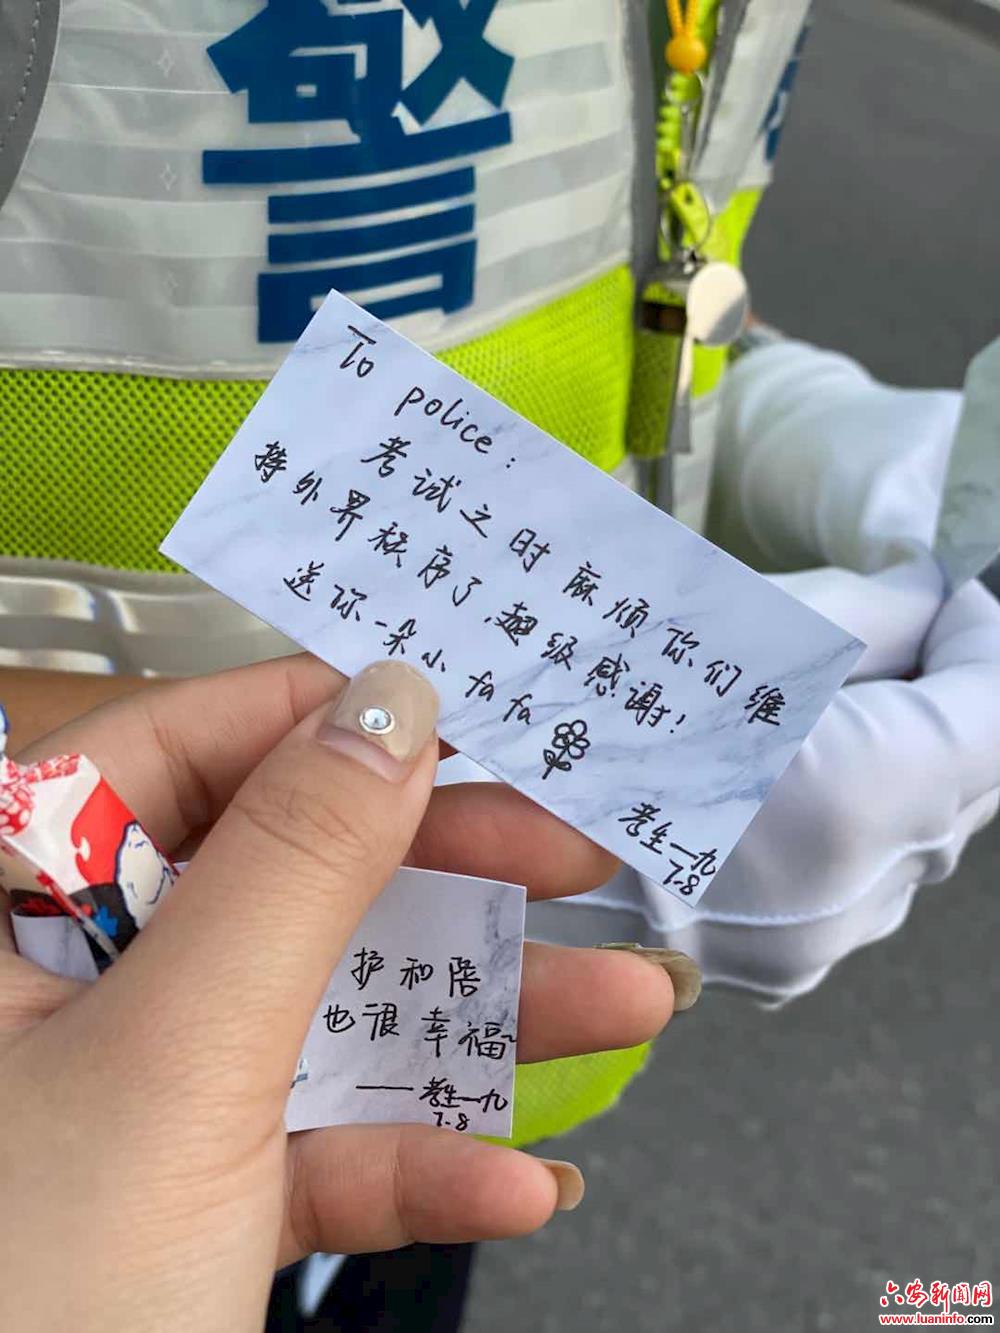 警
To police:
考试之时麻烦你们维
持外界秩序了,超级感谢!
送你一朵小fafa
考生一九
7.8
护和陪
也很幸福~
——考生一九
7.8
六安新闻网
www.luaninfo.com